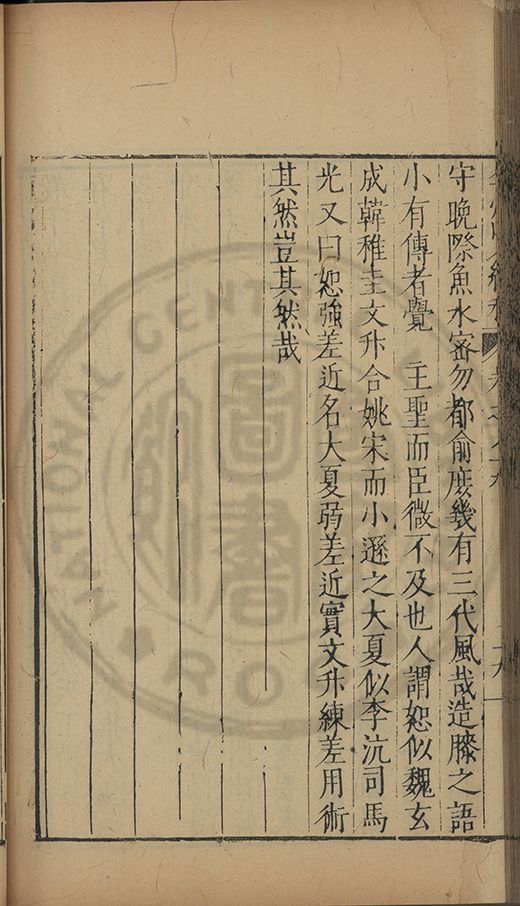 守晚際魚水密勿都俞庶幾有三代風哉造膝之語
小有傳者覺　主聖而臣微不及也人謂恕似魏玄
成韓稚圭文升合姚宋而小遜之大夏似李沆司馬
光又曰恕強差近名大夏弱差近實文升練差用術
其然豈其然哉